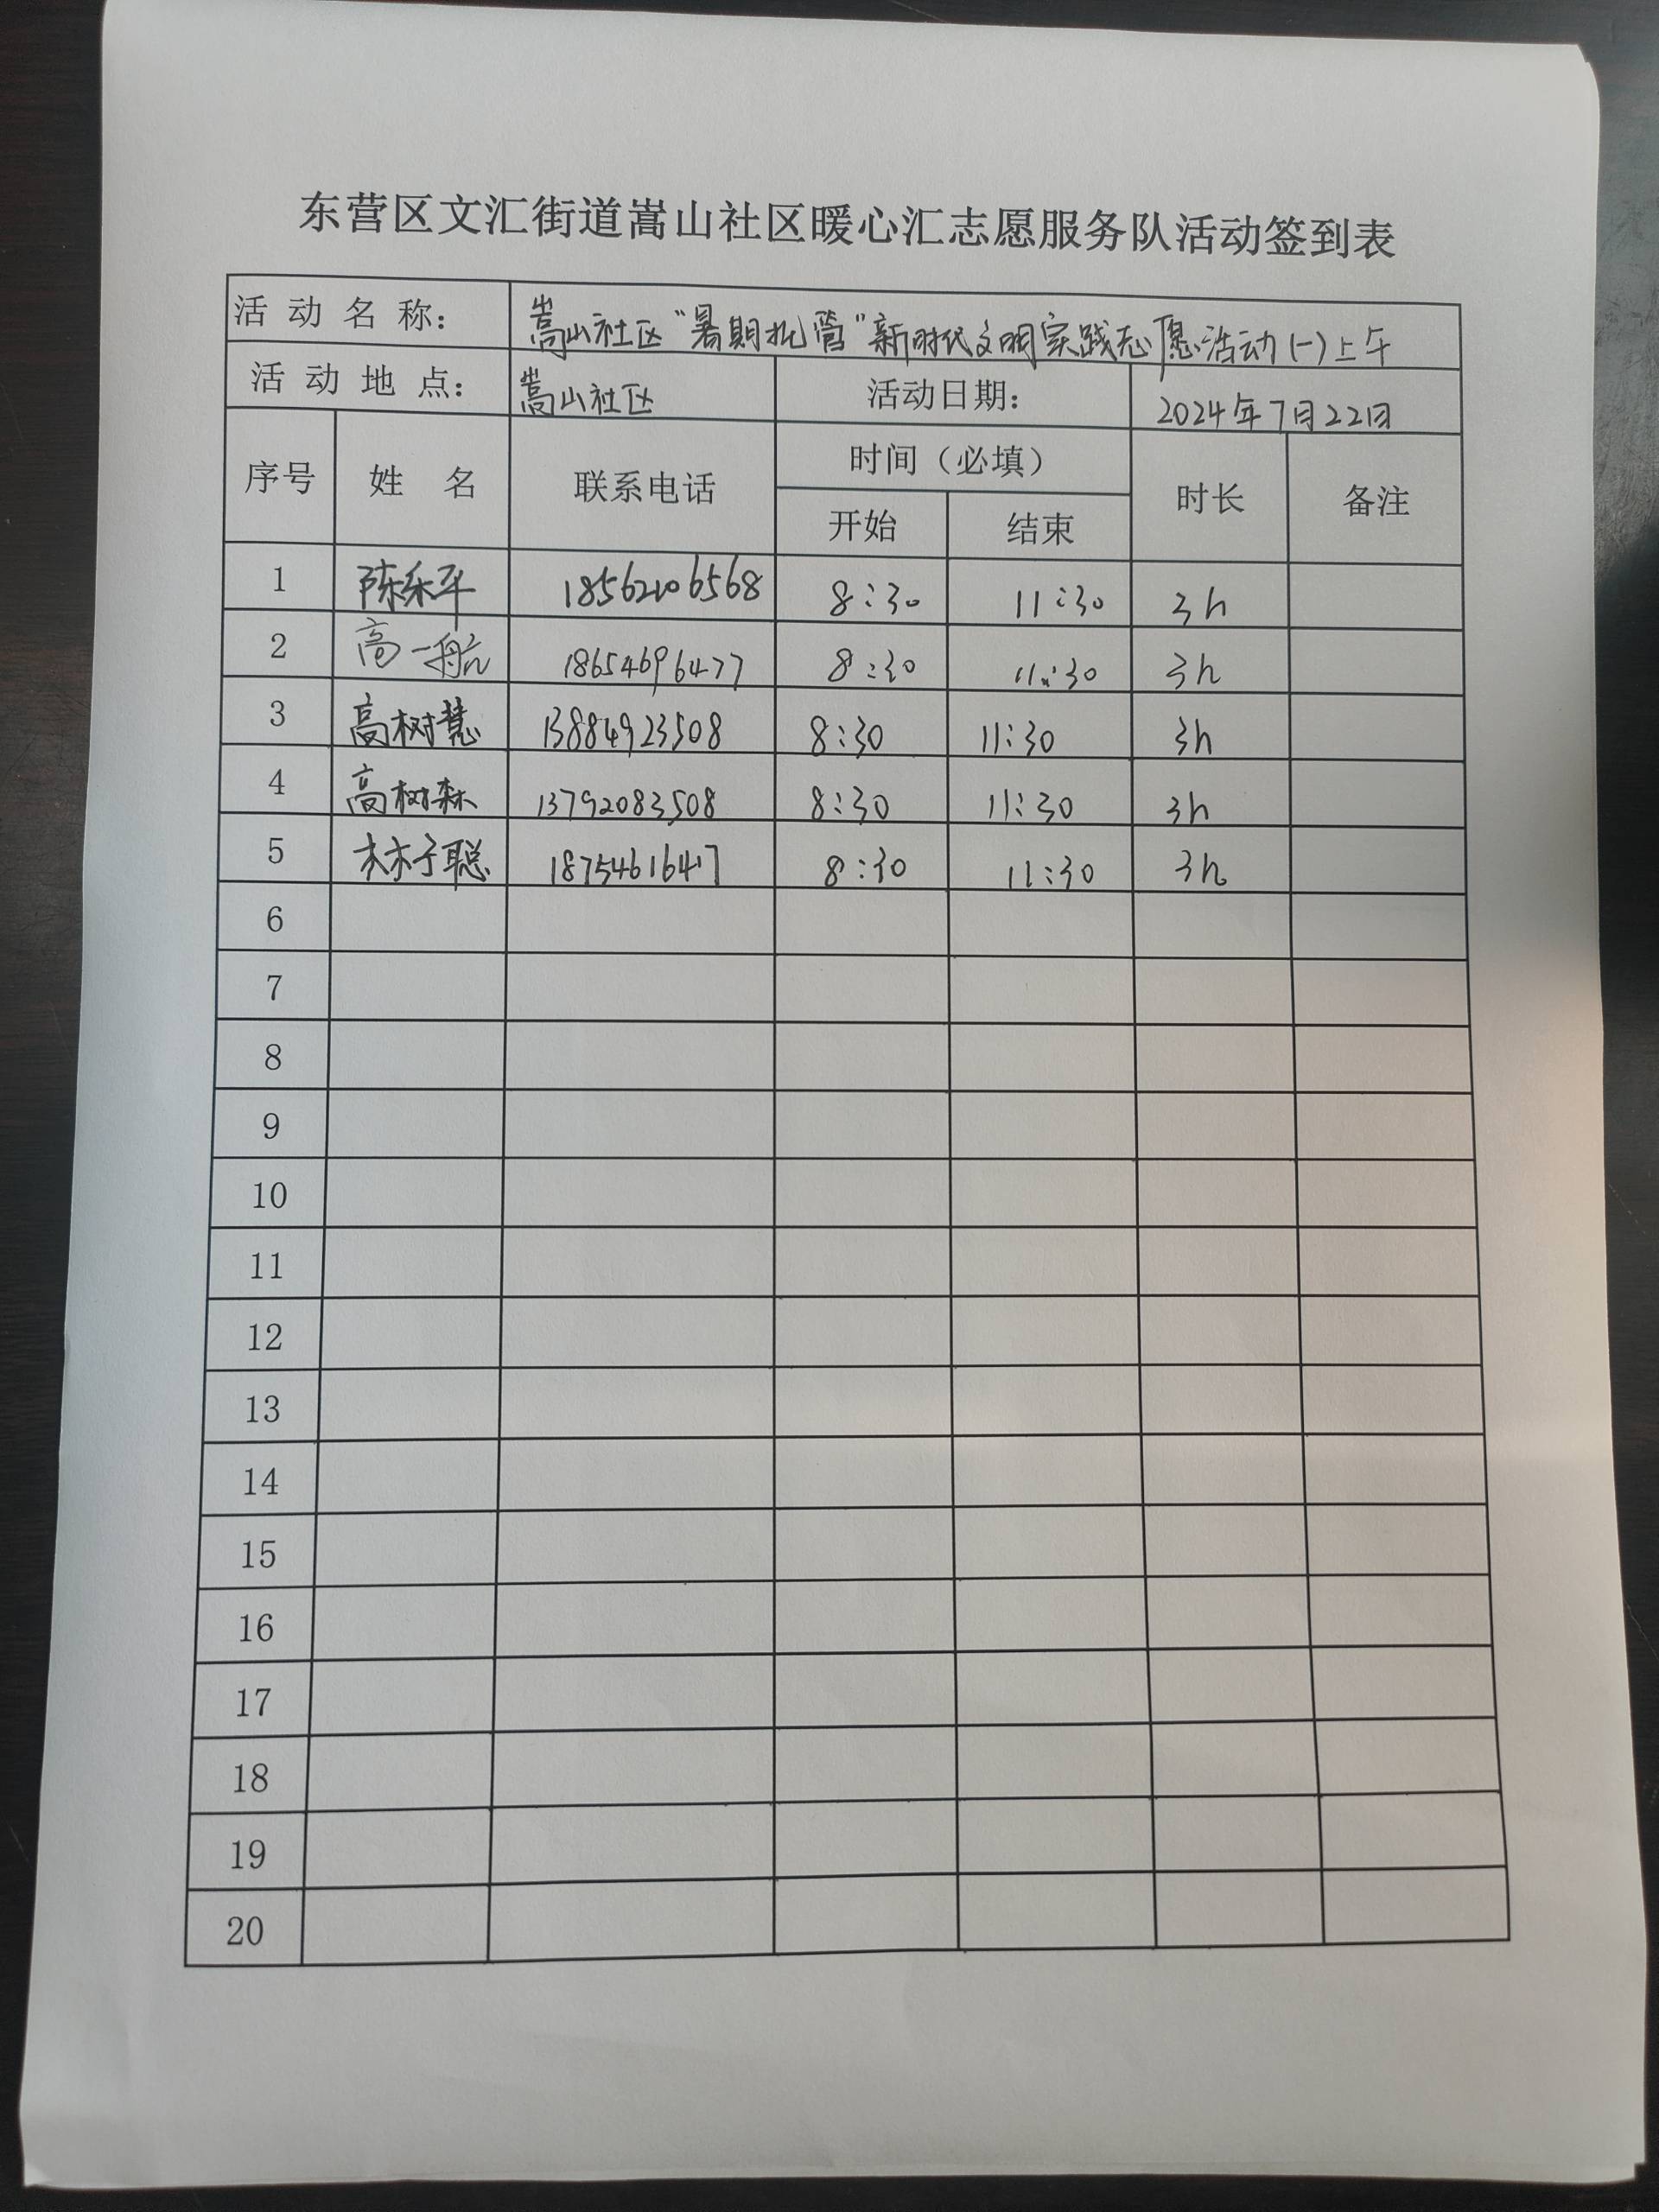 东营区文汇街道嵩山社区暖心汇志愿服务队活动签到表
活动名称： 嵩山社区“暑期托管”新时代文明实践志愿活动(一)上午
活动地点： 嵩山社区 活动日期： 2024年7月22日
序号 姓名 联系电话 时间（必填） 时长 备注
开始 结束
1 陈乐平 18562106568 8:30 11:30 3h
2 高一航 18654696477 8:30 11:30 3h
3 高树慧 13884923508 8:30 11:30 3h
4 高树森 13792083508 8:30 11:30 3h
5 林子聪 18754616417 8:30 11:30 3h
6
7
8
9
10
11
12
13
14
15
16
17
18
19
20